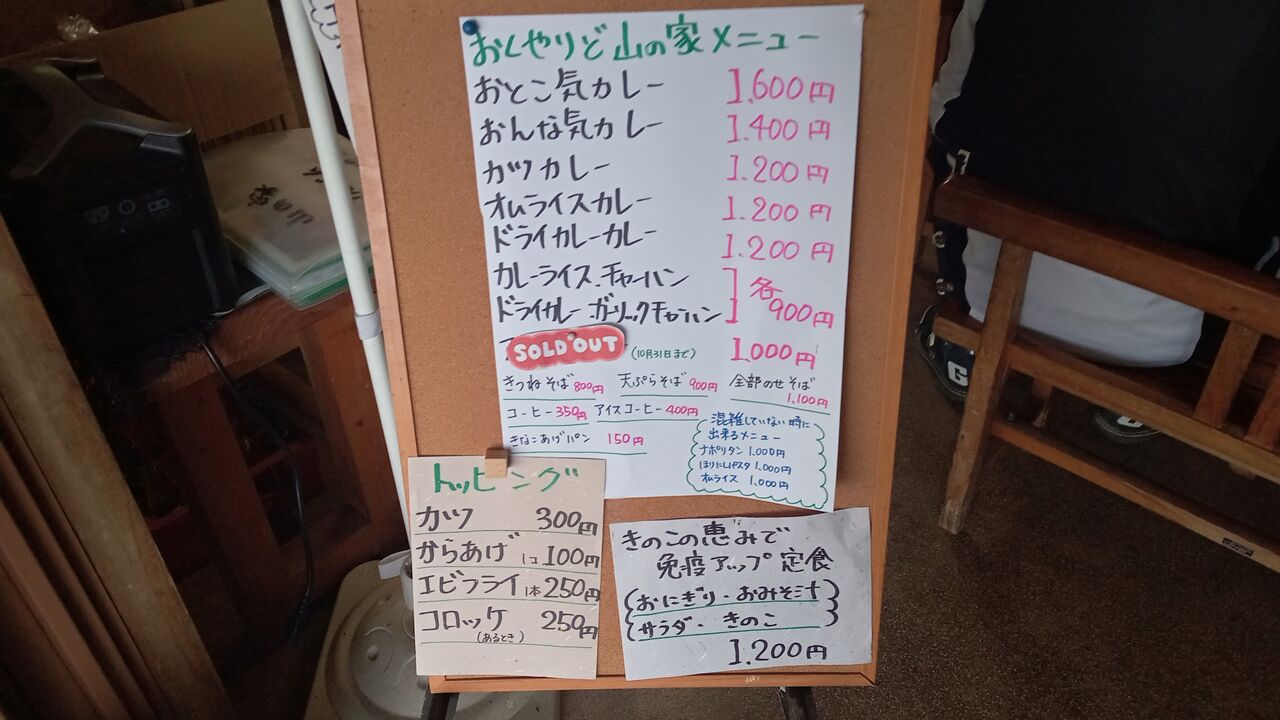 おくやりど山の家メニュー
おとこ気カレー 1.600円
おんな気カレー 1.400円
カツカレー 1.200円
オムライスカレー 1.200円
ドライカレーカレー 1.200円
カレーライス.チャーハン
ドライカレー.ガーリックチャーハン 各900円
SOLD OUT (10月31日まで) 1.000円
きつねそば800円 天ぷらそば900円 全部のせそば
1.100円
コーヒー350円 アイスコーヒー400円
きなこあげパン 150円
混雑していない時に
出来るメニュー
ナポリタン 1.000円
1.000円
オムライス 1.000円
トッピング
カツ 300円
からあげ 1コ100円
エビフライ 1本250円
コロッケ 250円
(あるとき)
きのこの恵みで
免疫アップ定食
おにぎり・おみそ汁
サラダ・きのこ
1.200円
G